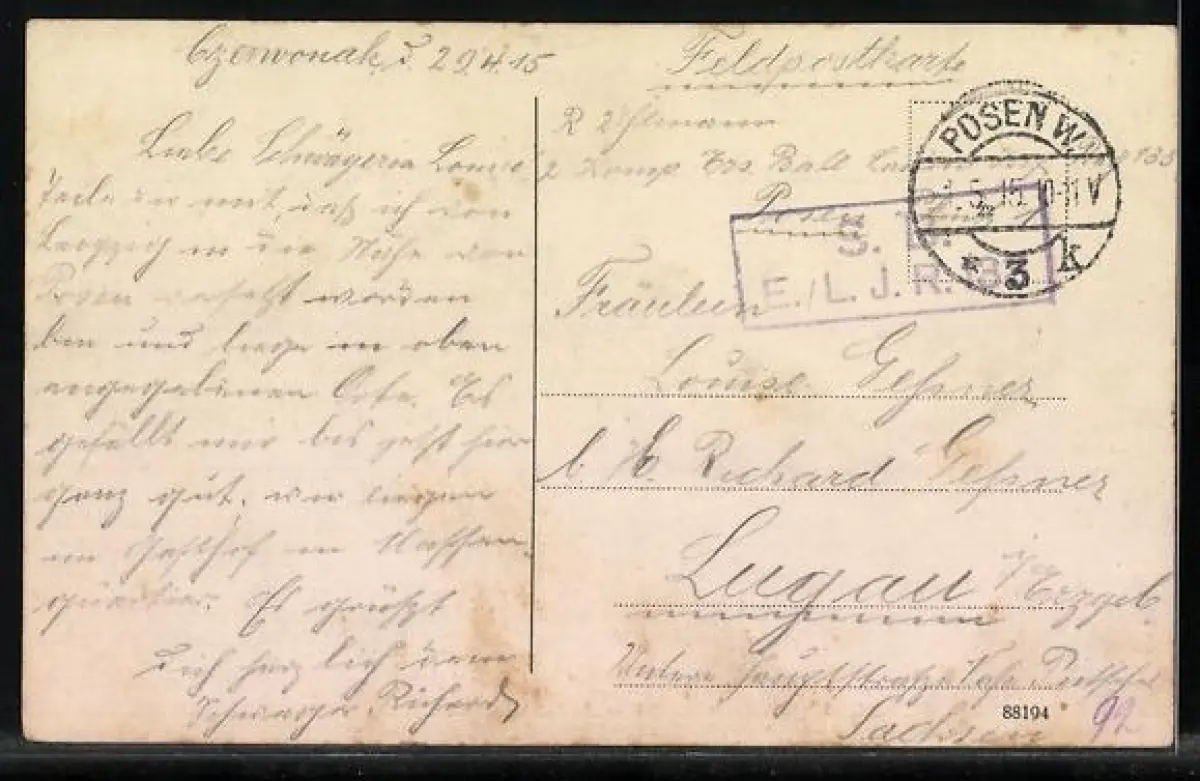 Czerwonak, d. 29.4.15
Liebe Schwägerin Louise
Teile dir mit, daß ich von
Leipzig in die Nähe von
Posen versetzt worden
bin und liege in oben
angegebenen Orte. Es
gefällt mir bis jetzt hier
ganz gut, wir liegen
im Gasthof in Massen-
quartier. Es grüßt
Dich herzlich dein
Schwager Richard
Feldpostkarte
R
2 Komp Ers. Batl.
Posen
POSEN W.
5.15.10-11V
* 3 k
S. B.
E./L.J.R.
Fräulein
Louise Geßner
b. H. Richard Geßner
Lugau i/Erzgeb.
Untere Hauptstraße
Sachsen
88194
92